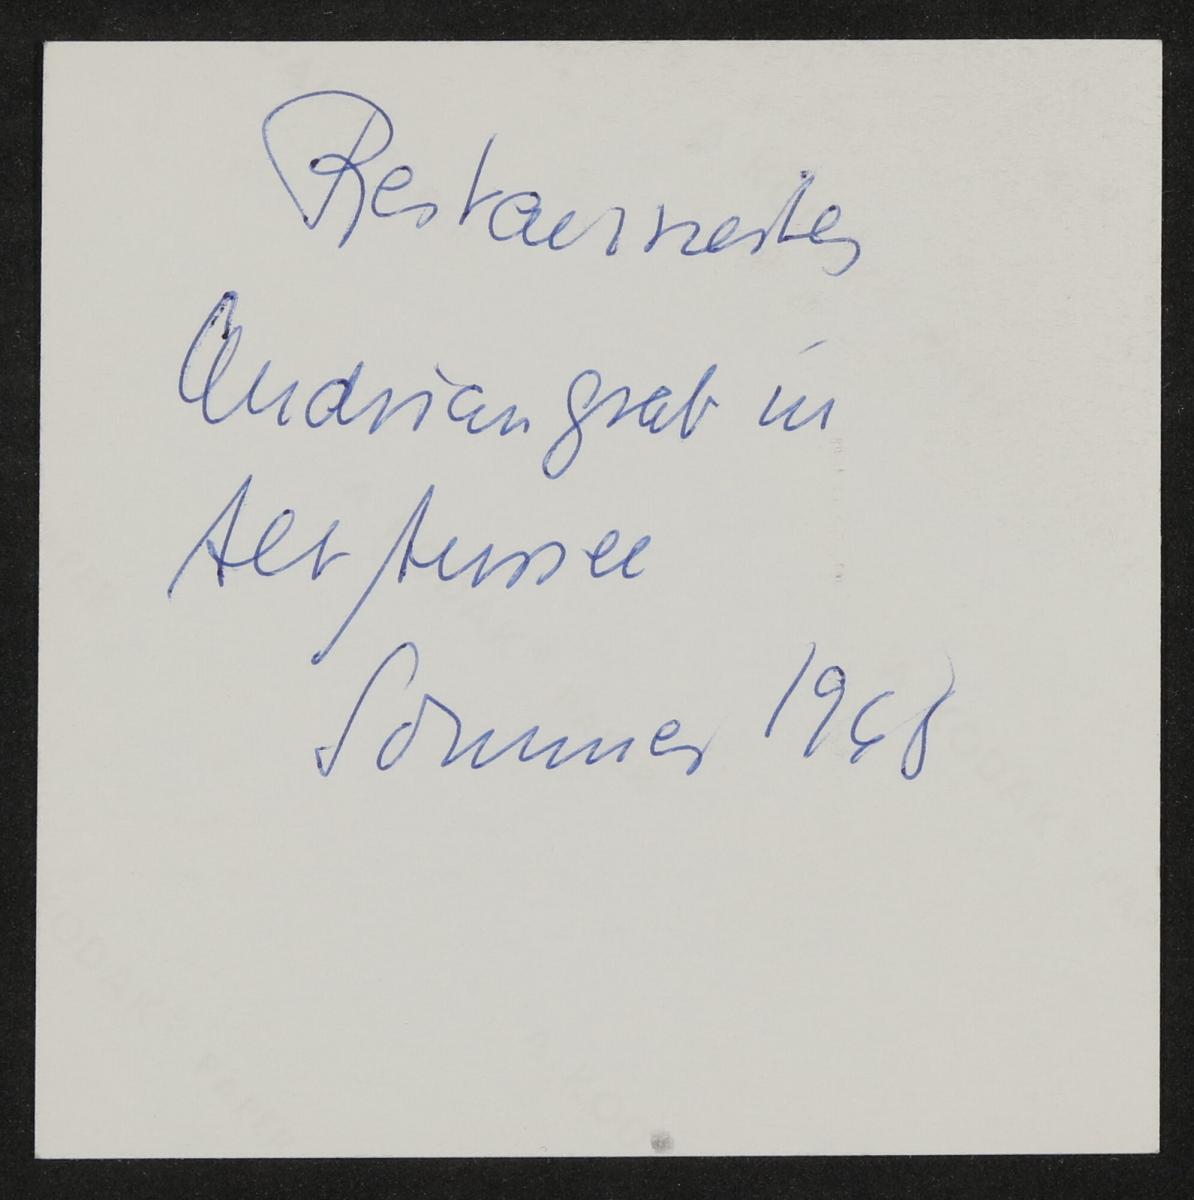 Restauriertes
Andriangrab in
Alt Aussee
Sommer 1968